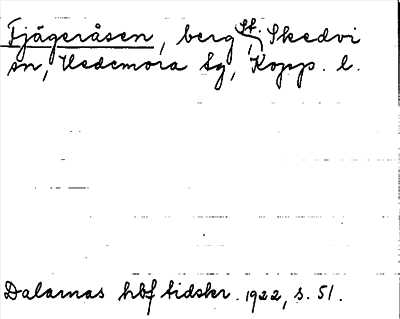 Fjägeråsen, berg, St. Skedvi
sn, Hedemora Sg, Kopp. l.
Dalarnas hbf tidskr. 1922, s. 51.